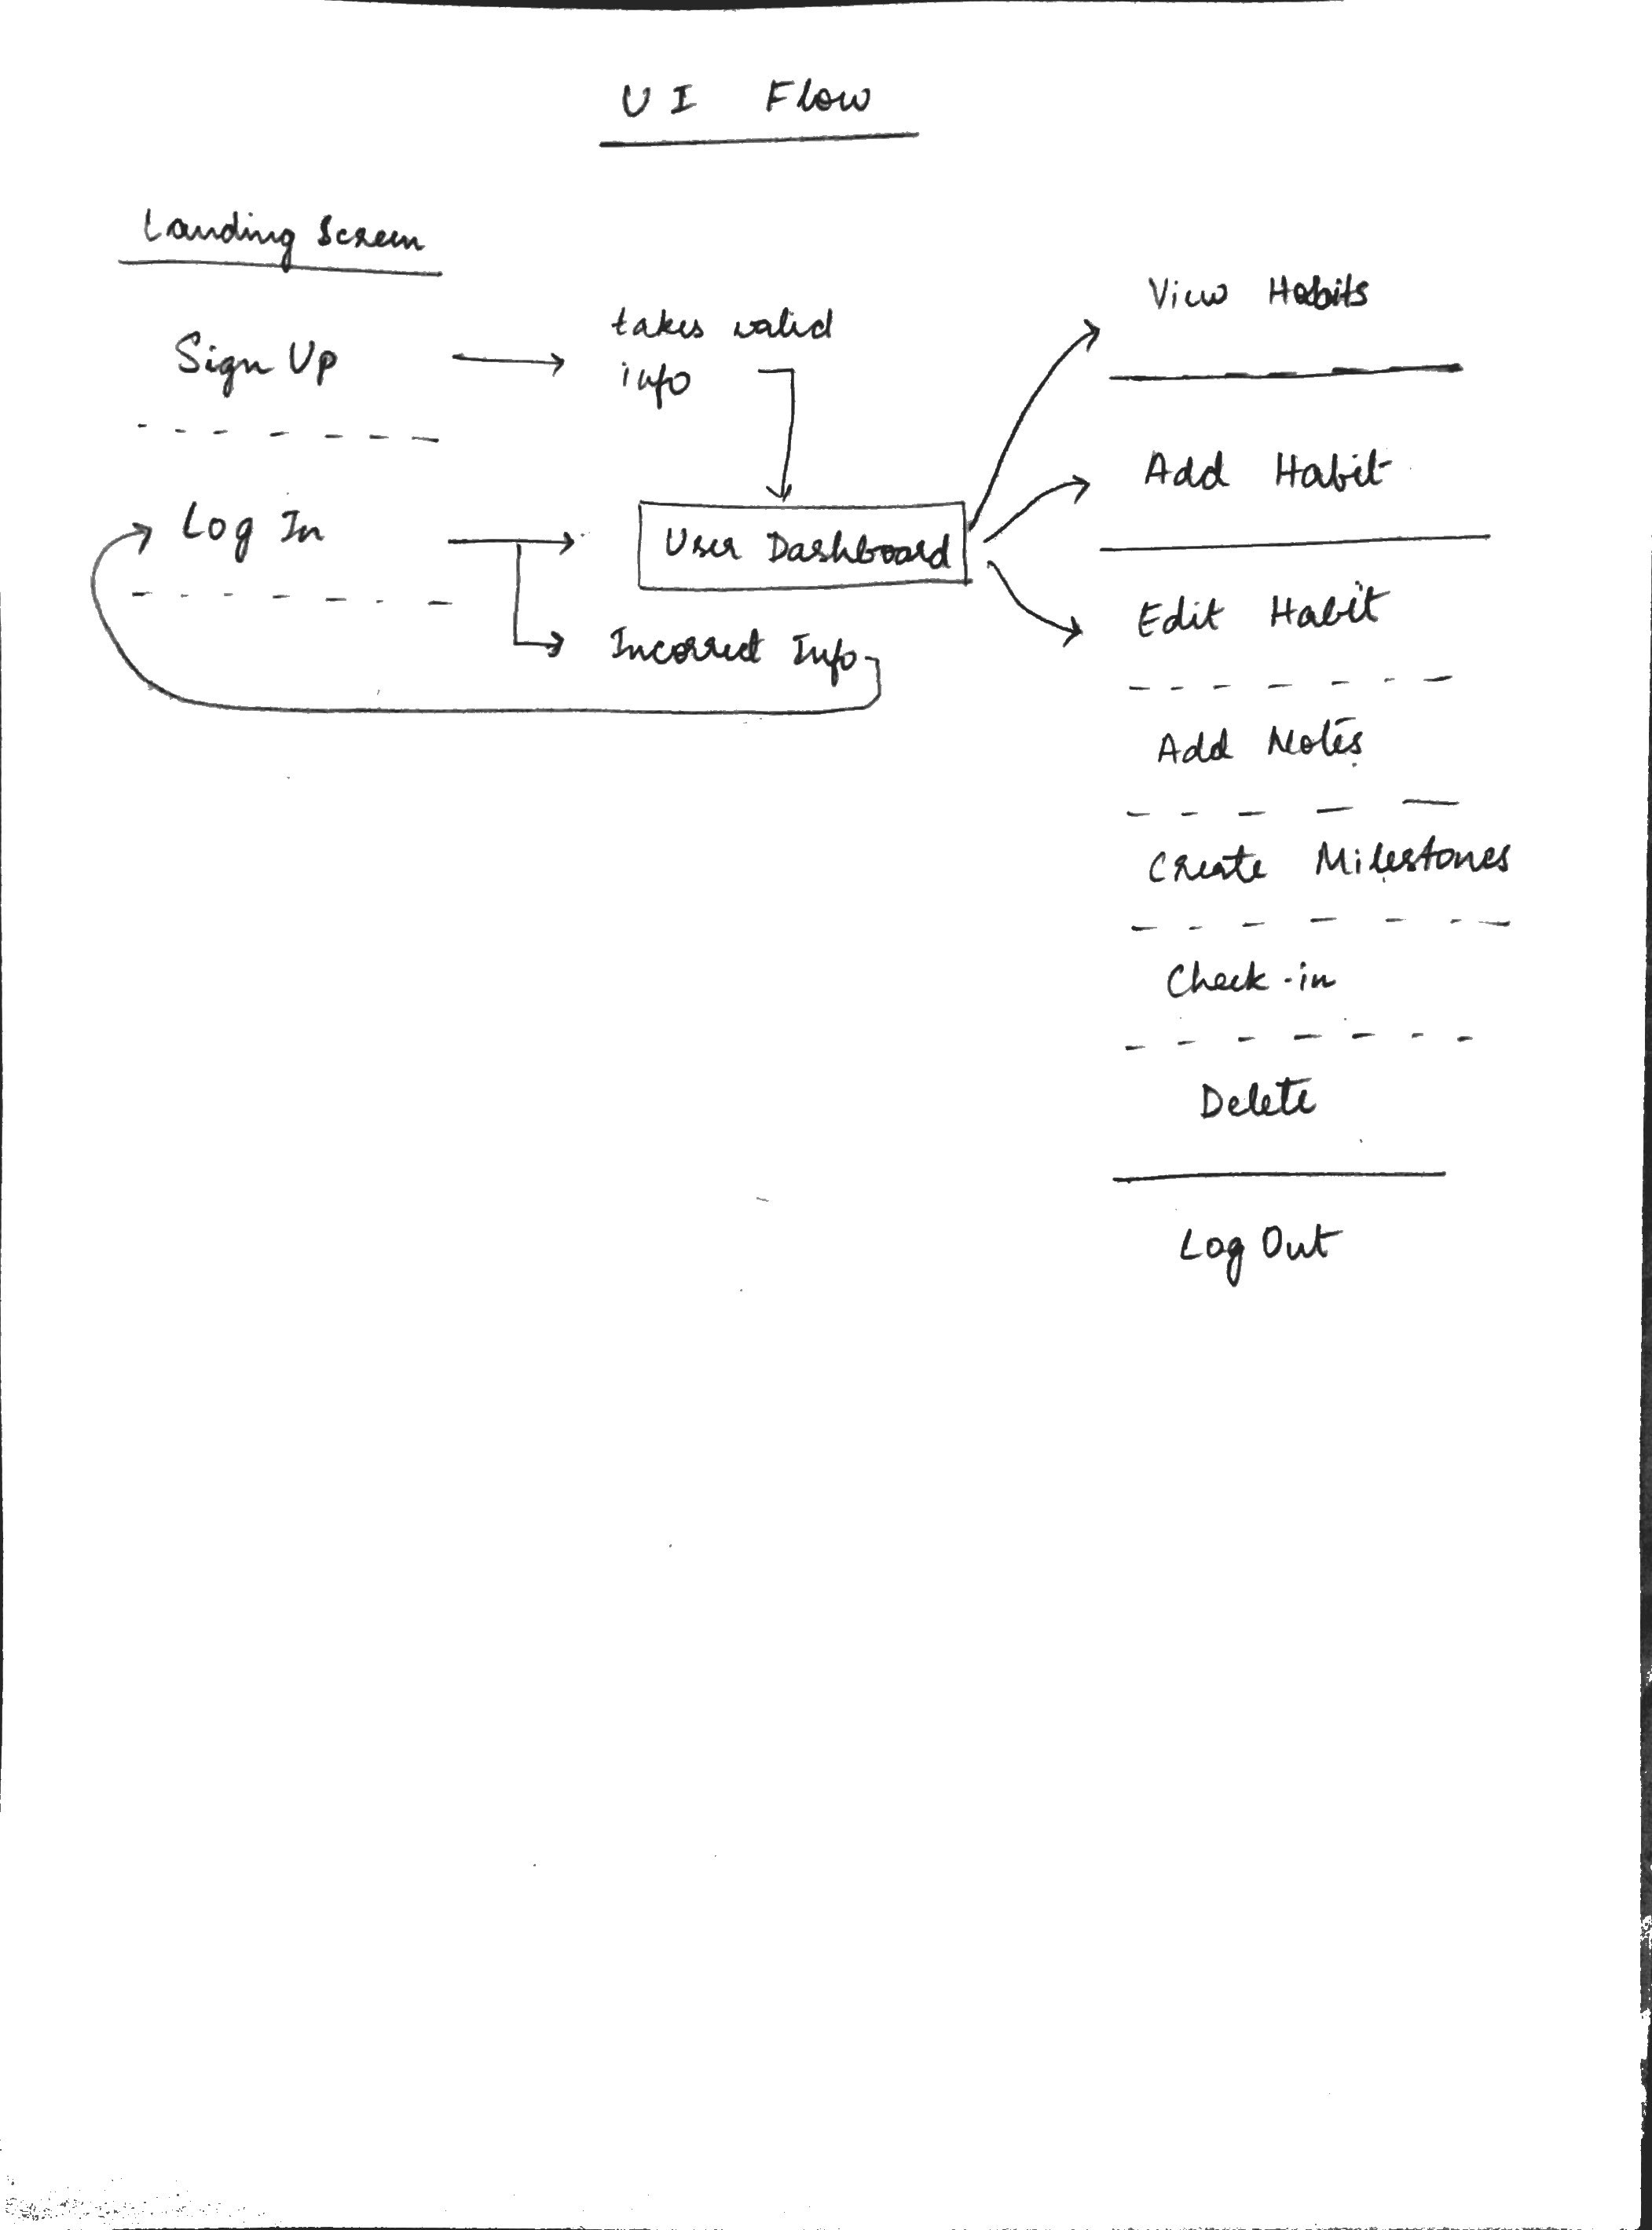 UI Flow
Landing Screen
Sign Up
takes valid
info
Log In
User Dashboard
Incorrect Info
View Habits
Add Habit
Edit Habit
Add Notes
Create Milestones
Check-in
Delete
Log Out